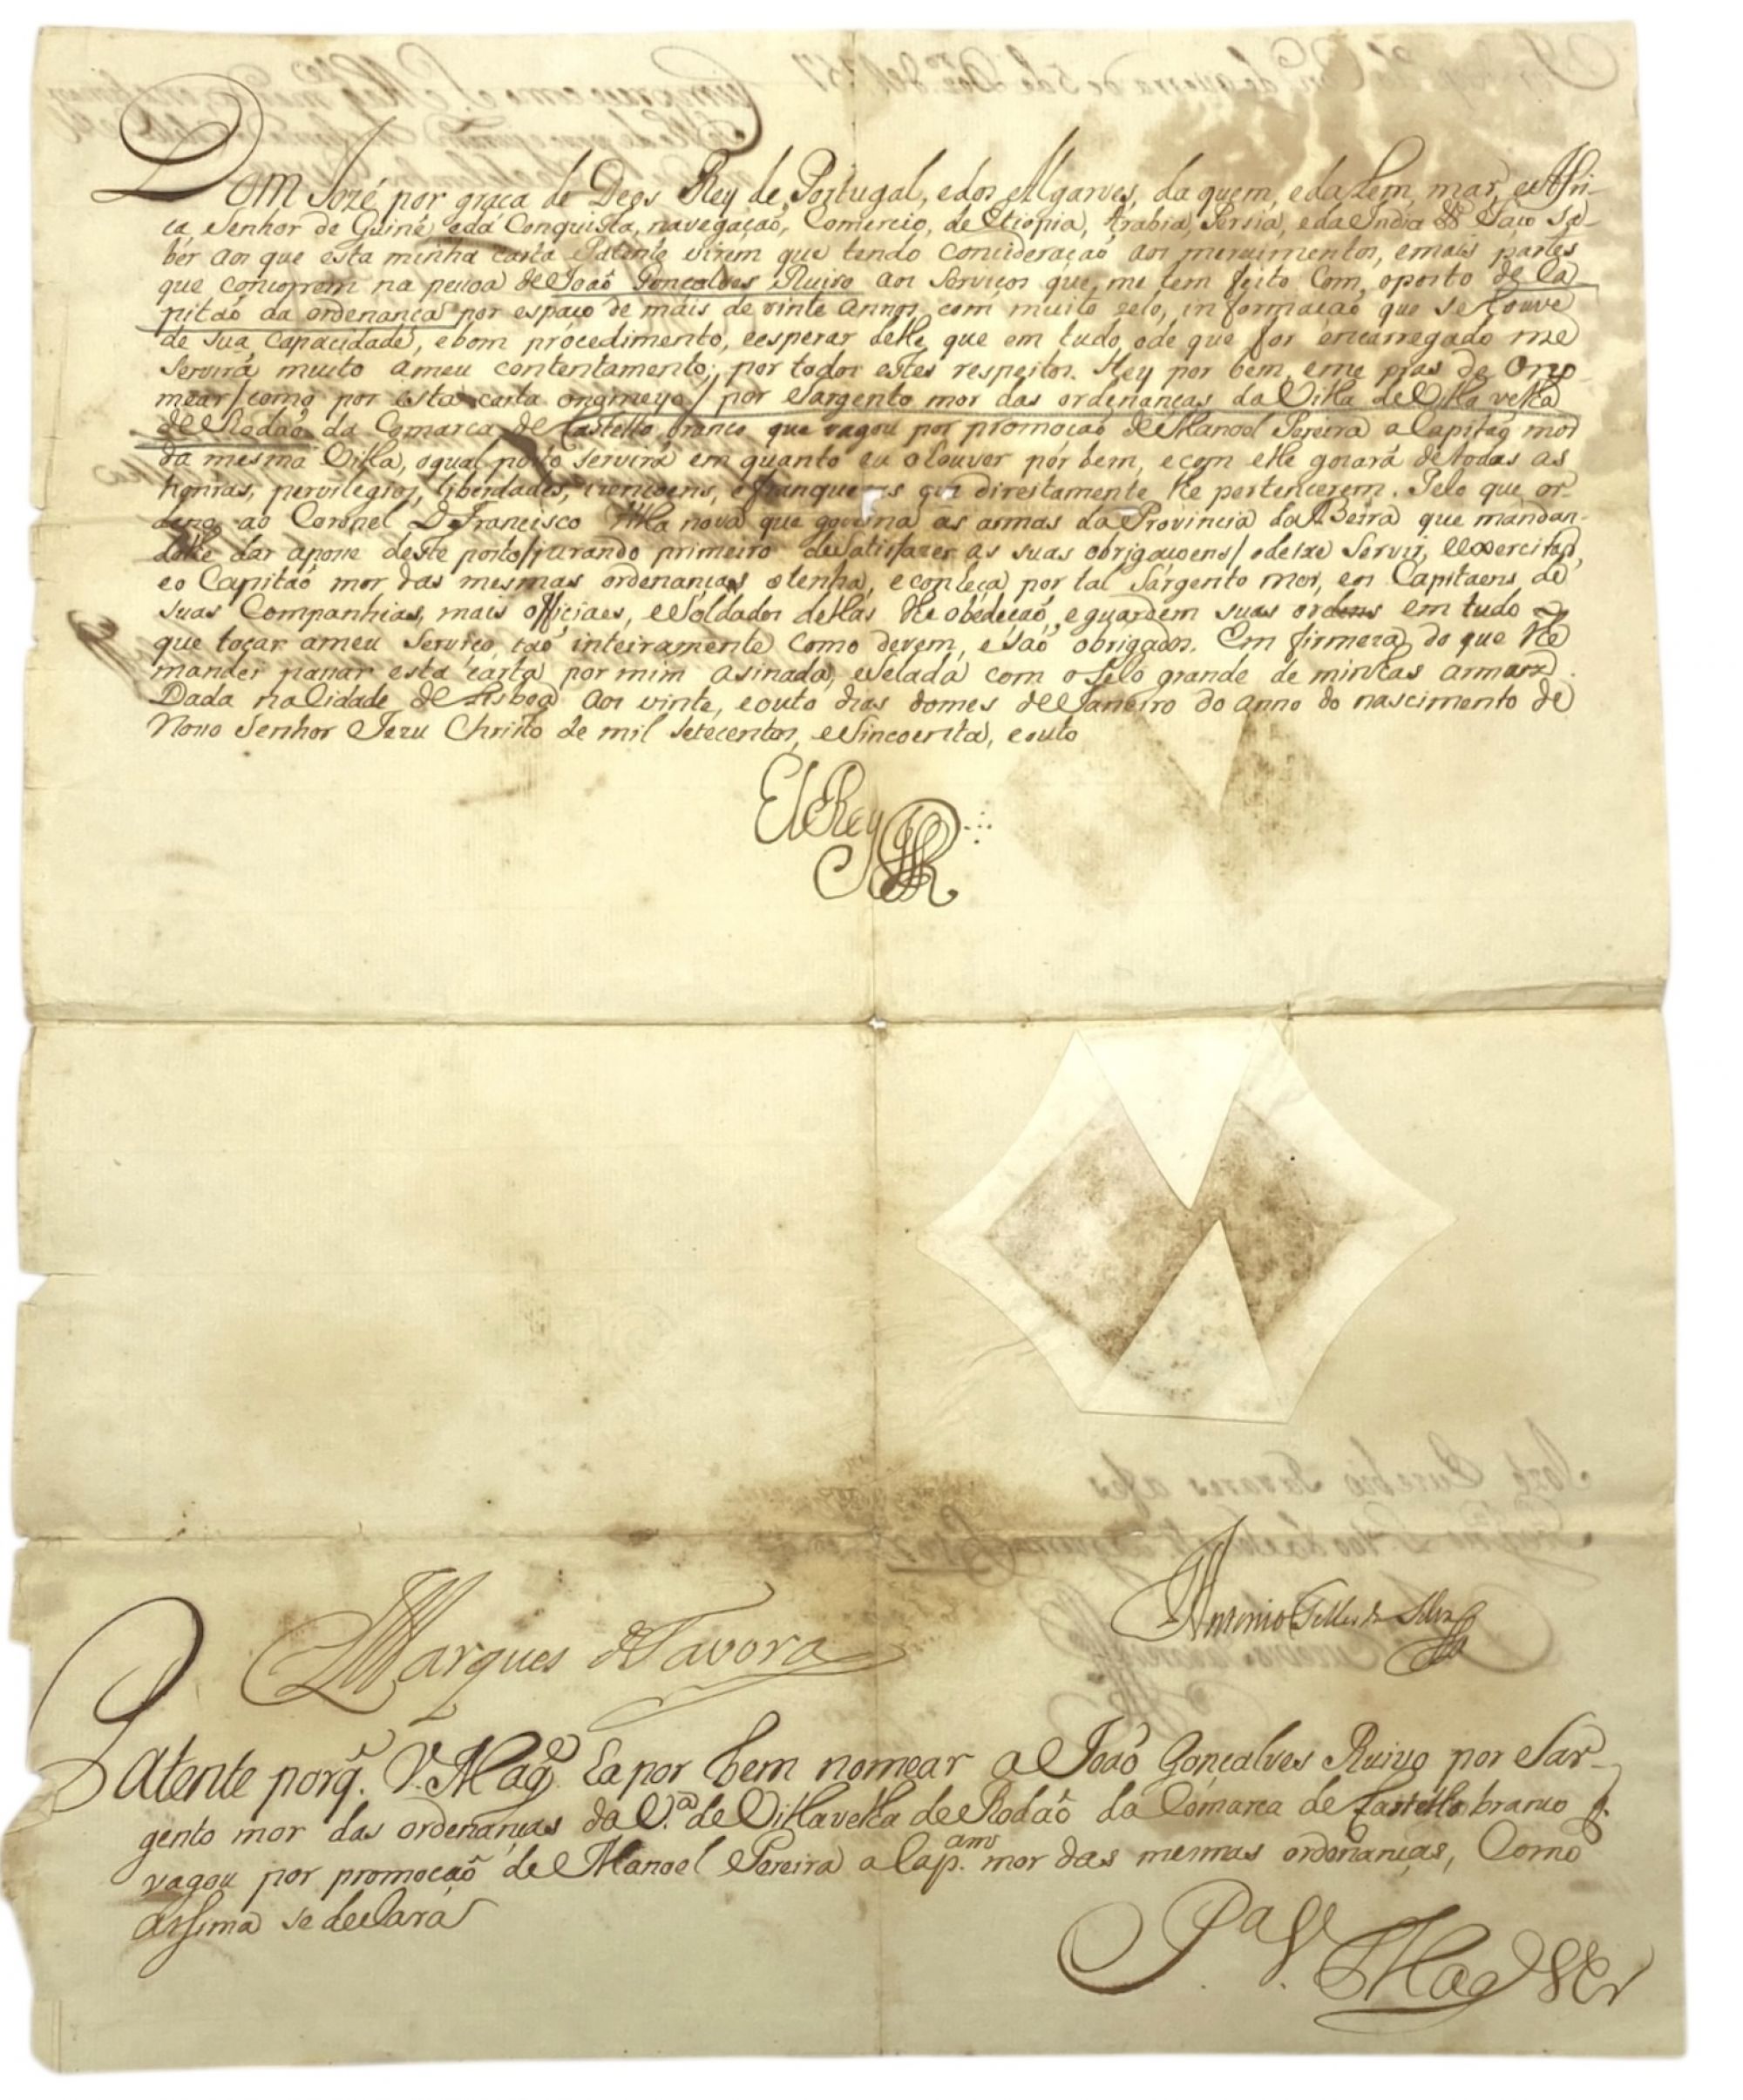 Dom Jozé por graça de Deos Rey de Portugal, e dos Algarves, da quem, e da lem, mar, e Afri-
ca, Senhor de Guiné, e da Conquista, navegaçaõ, Comercio, de Etiopia, Arabia, Persia, e da India &&. Faço Sa-
bér aos que esta minha carta Patente virem que tendo concideraçaõ aos meresimentos, e mais partes
que concorrem na pessoa de Joaõ Gonçalves Ruivo aos Serviços que, me tem feito Com, o posto de Ca
pitaõ da ordenança por espaço de mais de vinte annos, com muito zelo, informaçaõ que se houve
de sua capacidade, e bom procedimento, e esperar delle, que em tudo, o de que for encarregado me
Servirá muito a meu contentamento; por todos estes respeitos. Hey por bem, e me pras de o no-
mear / como por esta carta o nomeyo / por Sargento mor das ordenanças da Villa de Villa velha
de Rodaõ da Comarca de Castello branco que vagou por promoçaõ de Manoel Pereira a Capitaõ mor
da mesma Villa, o qual posto servirá em quanto eu o houver por bem, e com elle gozará de todas as
honras, previlegios, liberdades, izençoens, e franquezas que direitamente lhe pertencerem. Pelo que or-
deno ao Coronel D. Francisco Villa nova que governa as armas da Provincia da Beira que mandan-
dolhe dar a posse deste posto / jurando primeiro de Satisfazer as suas obrigaçoens / o deixe Servir, e exercitar,
e o Capitaõ mor das mesmas ordenanças o tenha, e conheça por tal Sargento mor, e os Capitaens, de
suas Companhias, mais officiaes, e Soldados dellas lhe obedeçaõ, e guardem suas ordens em tudo o
que tocar a meu Serviço, taõ inteiramente como devem, e saõ obrigados. Em firmeza do que lhe
mandei passar esta carta por mim asinada, e Selada com o Selo grande de minhas armas.
Dada na Cidade de Lisboa aos vinte, e outo dias do mes de Janeiro do anno do nascimento de
Nosso Senhor Jezu Christo de mil setecentos, e Sincoenta, e outo
El Rey
Marques de Tavora
Antonio Telles da Silva
Patente porq. V. Mag.de ha por bem nomear a Joaõ Gonçalves Ruivo por Sar-
gento mor das ordenanças da V.a de Villa velha de Rodaõ da Comarca de Castello branco q.
vagou por promoçaõ de Manoel Pereira a Cap.am mor das mesmas ordenanças, Como
assima se declara
P.a V. Mag.de Ver